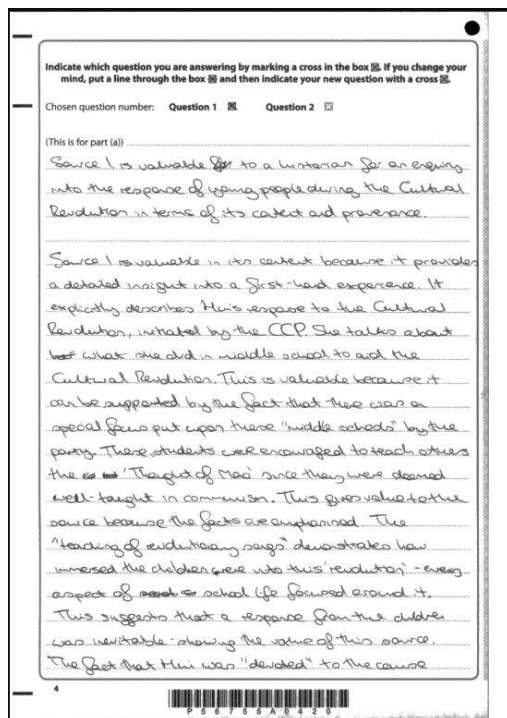 Indicate which question you are answering by marking a cross in the box ☒. If you change your
mind, put a line through the box and then indicate your new question with a cross ☒.
Chosen question number: Question 1 ☒ Question 2 ☒
(This is for part (a))
Source 1 is valuable to a historian for an enquiry
into the response of young people during the Cultural
Revolution in terms of its content and provenance.
Source 1 is valuable in its content because it provides
a detailed insight into a first-hand experience. It
explicitly describes Hui's response to the Cultural
Revolution, initiated by the CCP. She talks about
what she did in middle school to aid the
Cultural Revolution. This is valuable because it
can be supported by the fact that there was a
special focus put upon these "middle schools" by the
party. These students were encouraged to teach others
the 'Thought of Mao' since they were deemed
well-taught in communism. This gives value to the
source because the facts are emphasised. The
"teaching of revolutionary songs" demonstrates how
immersed the children were into this 'revolution' - every
aspect of school life focused around it.
This suggests that a response from the children
was inevitable - showing the value of this source.
The fact that Hui was "devoted" to the cause
4
P56755A0420